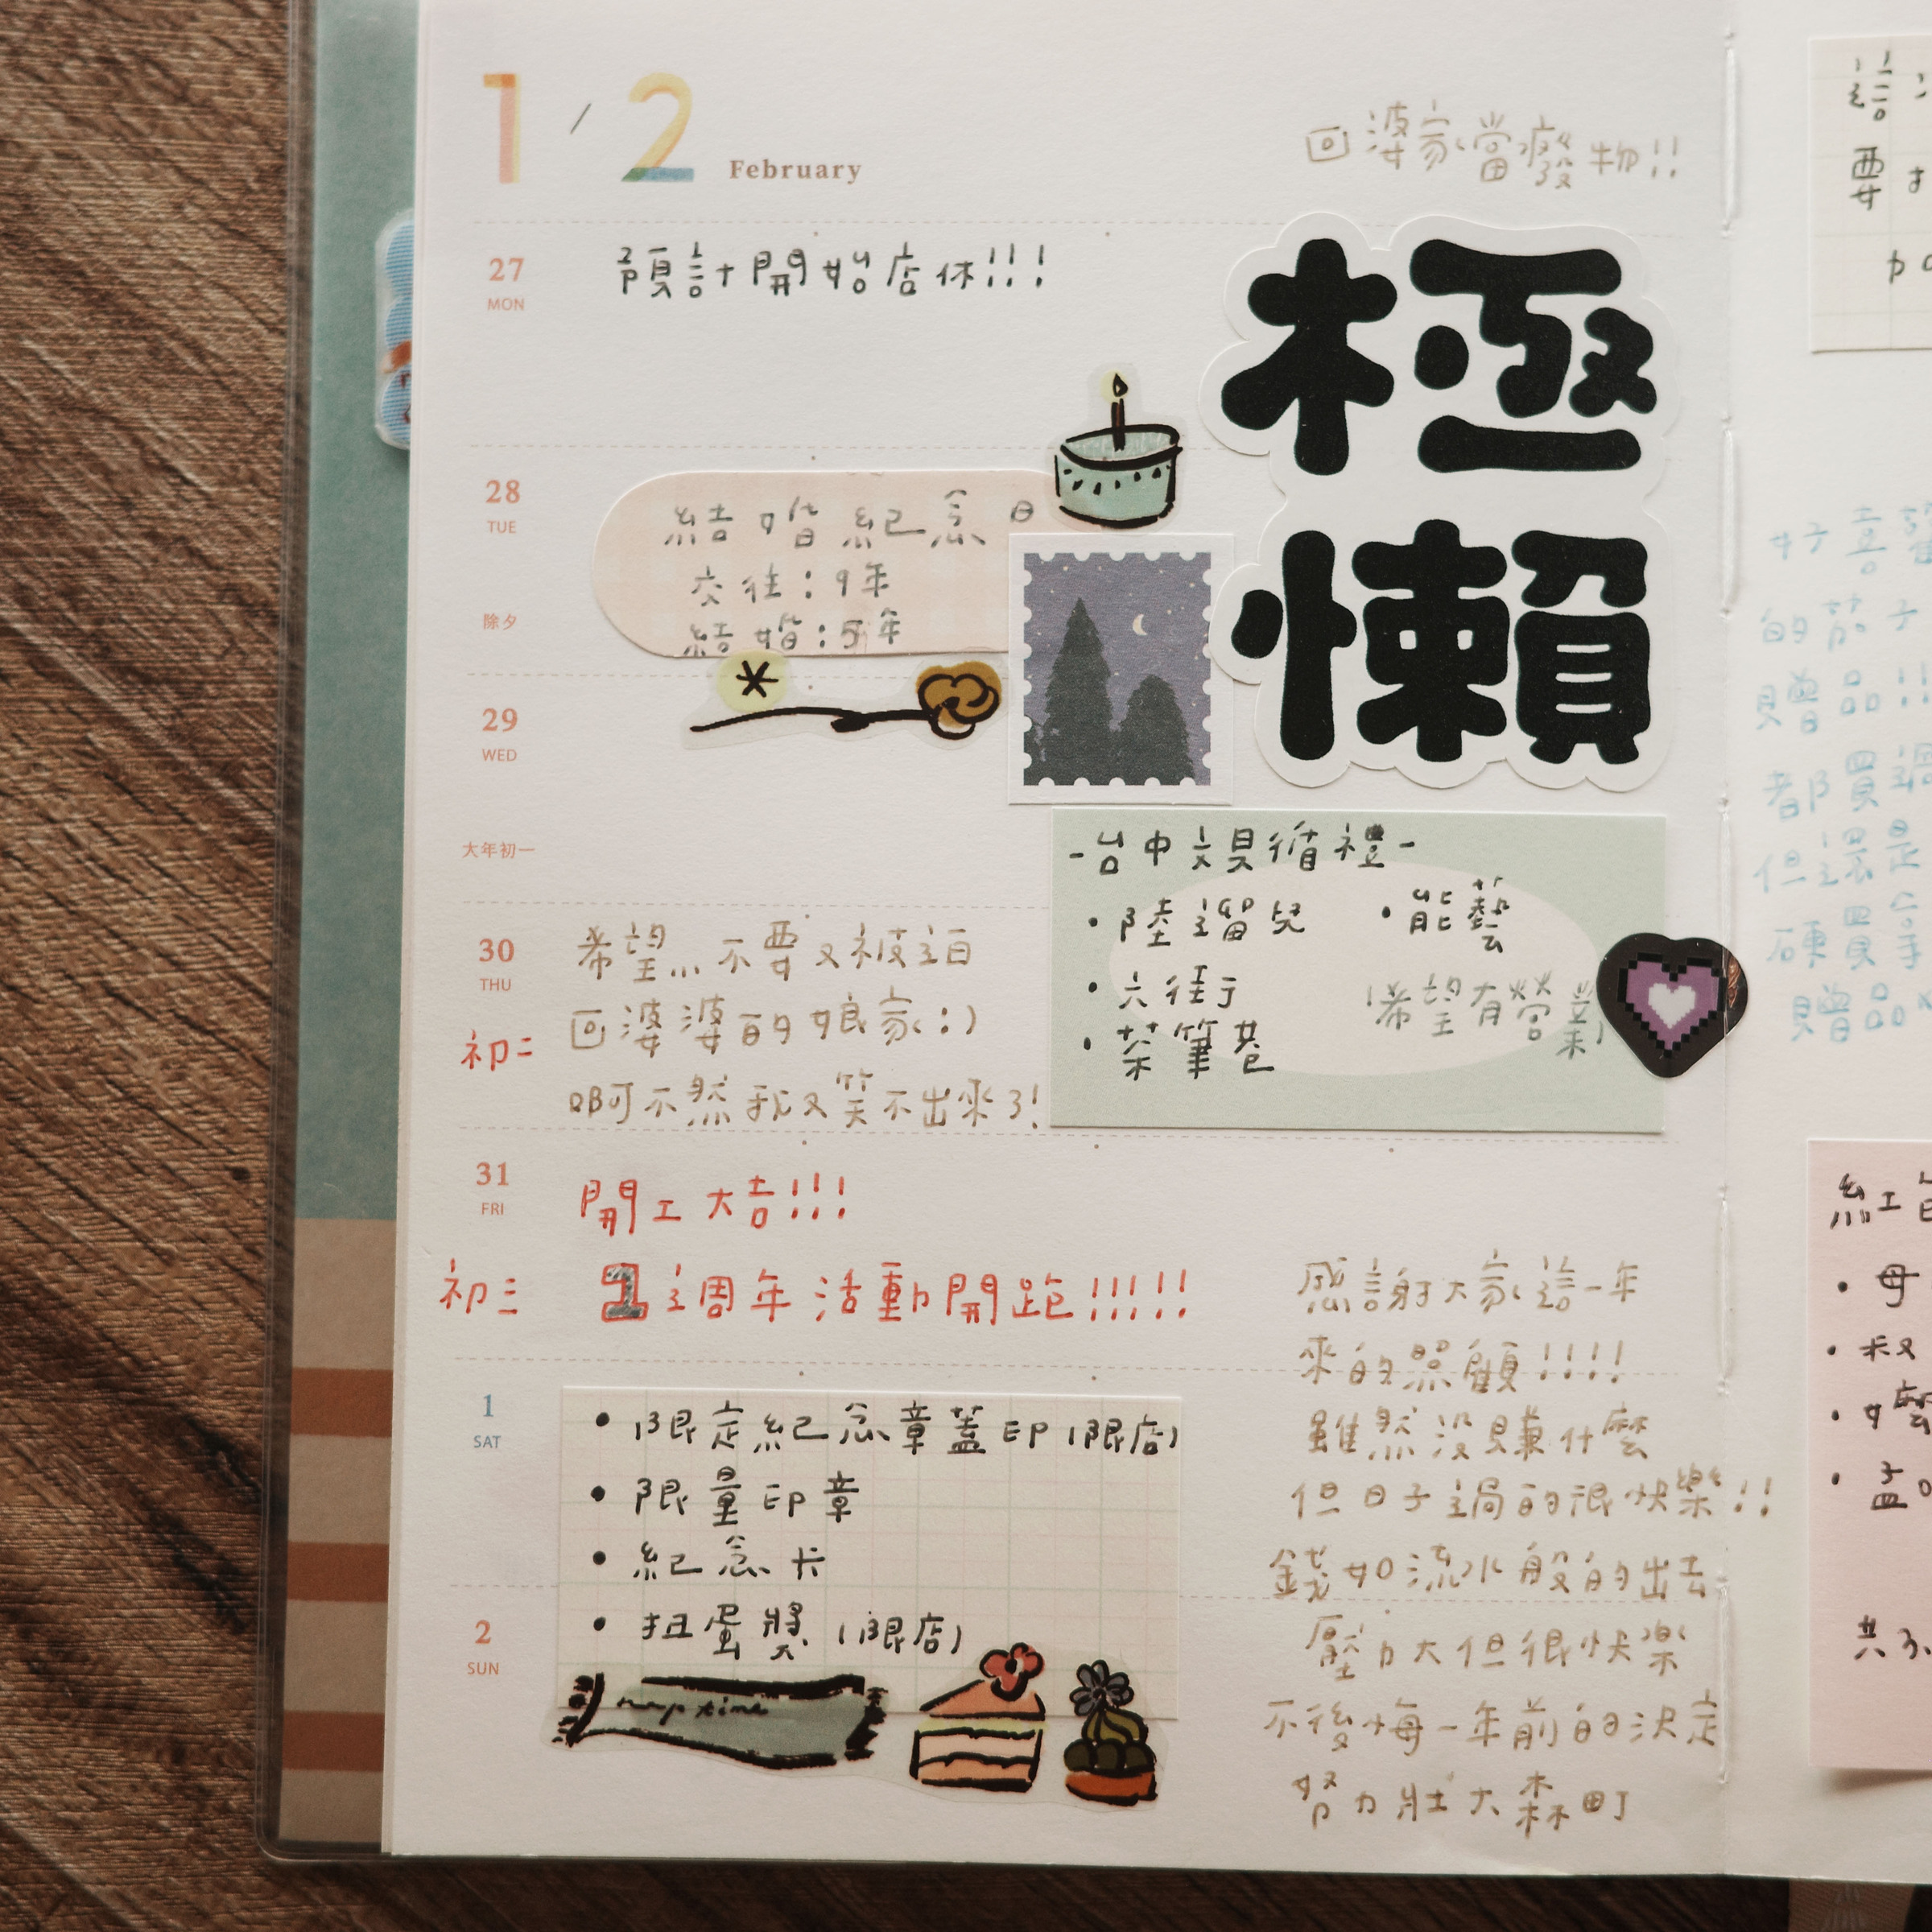 1 / 2 February
回婆家當廢物!!
27
MON
預計開始店休!!!
極
懶
28
TUE
除夕
結婚紀念日
交往：9年
結婚：5年
29
WED
大年初一
-台中文具循禮-
・陸遛兒
・能藝
・六街子
(希望有營業)
・菜筆巷
30
THU
初二
希望...不要又被迫
回婆婆的娘家:)
啊不然我又笑不出來了!
31
FRI
初三
開工大吉!!!
1週年活動開跑!!!!!
感謝大家這一年
來的照顧!!!!
雖然沒賺什麼
但日子過的很快樂!!
錢如流水般的出去
壓力大但很快樂
不後悔一年前的決定
努力壯大森町
1
SAT
• 限定紀念章蓋印(限店)
• 限量印章
• 紀念卡
• 扭蛋獎(限店)
2
SUN
nap time
要
好喜
的茄子
贈品!!
都買
但還是
硬買
贈品
紅
・母
・叔
・孟
共